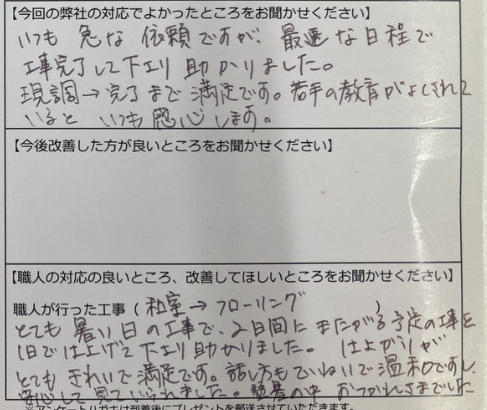 【今回の弊社の対応でよかったところをお聞かせください】
いつも 急な 依頼ですが、最速な日程で
工事完了して下さり 助かりました。
現調→完了まで 満足です。若手の教育がよくされて
いると いつも 感心します。
【今後改善した方が良いところをお聞かせください】
【職人の対応の良いところ、改善してほしいところをお聞かせください】
職人が行った工事（ 和室 → フローリング ）
とても 暑い日の工事で、2日間にまたがる予定の工事を
1日で仕上げて下さり助かりました。 仕上がりが
とても きれいで満足です。話し方もていねいで温和ですし、
安心して見ていられました。猛暑の中 おつかれさまでした
※アンケートハガキは到着後にプレゼントを郵送させていただきます。